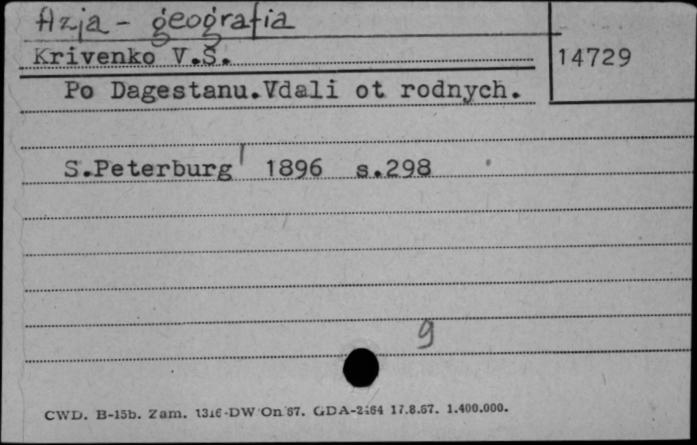 Azja - geografia
Krivenko V.S.
14729
Po Dagestanu.Vdali ot rodnych.
S.Peterburg 1896 s.298
9
CWD. B-15b. Zam. 1316-DW On 67. GDA-2464 17.8.67. 1.400.000.